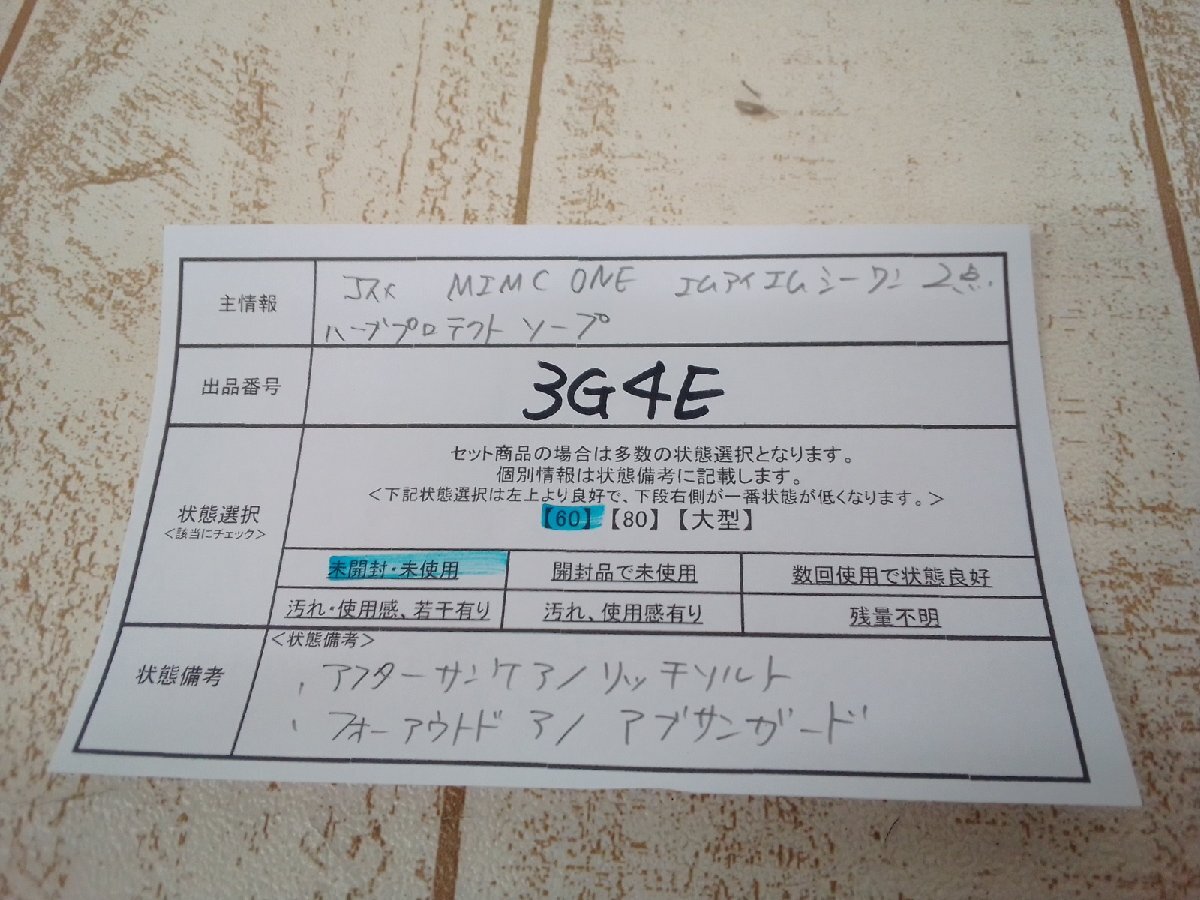 主情報
コスメ MIMC ONE エムアイエムシーワン 2点
ハーブプロテクトソープ
出品番号
3G4E
状態選択
<該当にチェック>
セット商品の場合は多数の状態選択となります。
個別情報は状態備考に記載します。
<下記状態選択は左上より良好で、下段右側が一番状態が低くなります。>
【60】【80】【大型】
未開封・未使用 開封品で未使用 数回使用で状態良好
汚れ・使用感、若干有り 汚れ、使用感有り 残量不明
状態備考
<状態備考>
、アフターサンケア / リッチソルト
、フォーアウトドア / アブサンガード